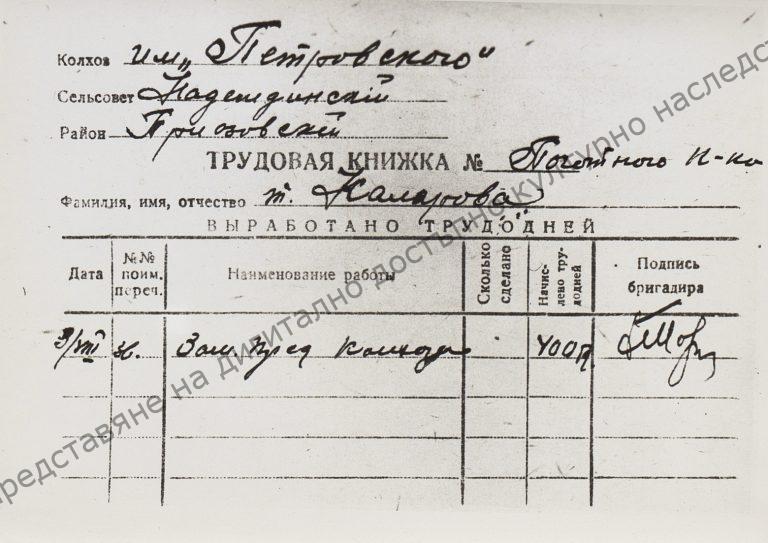 Колхоз им. „Петровского"
Сельсовет Надеждинскій
Район Приозовскій
ТРУДОВАЯ КНИЖКА № Почотного
Фамилия, имя, отчество т. Каларова
ВЫРАБОТАНО ТРУДОДНЕЙ
Дата
№№ поим. переч.
Наименование работы
Сколько сделано
Начислено трудодней
Подпись бригадира
Зам. Пред Колхоза
400
представяне на дигитално достъпно културно наследст